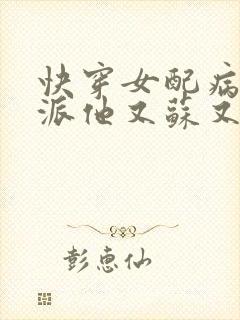 快穿女配病
派他又蘇又
彭惠仙